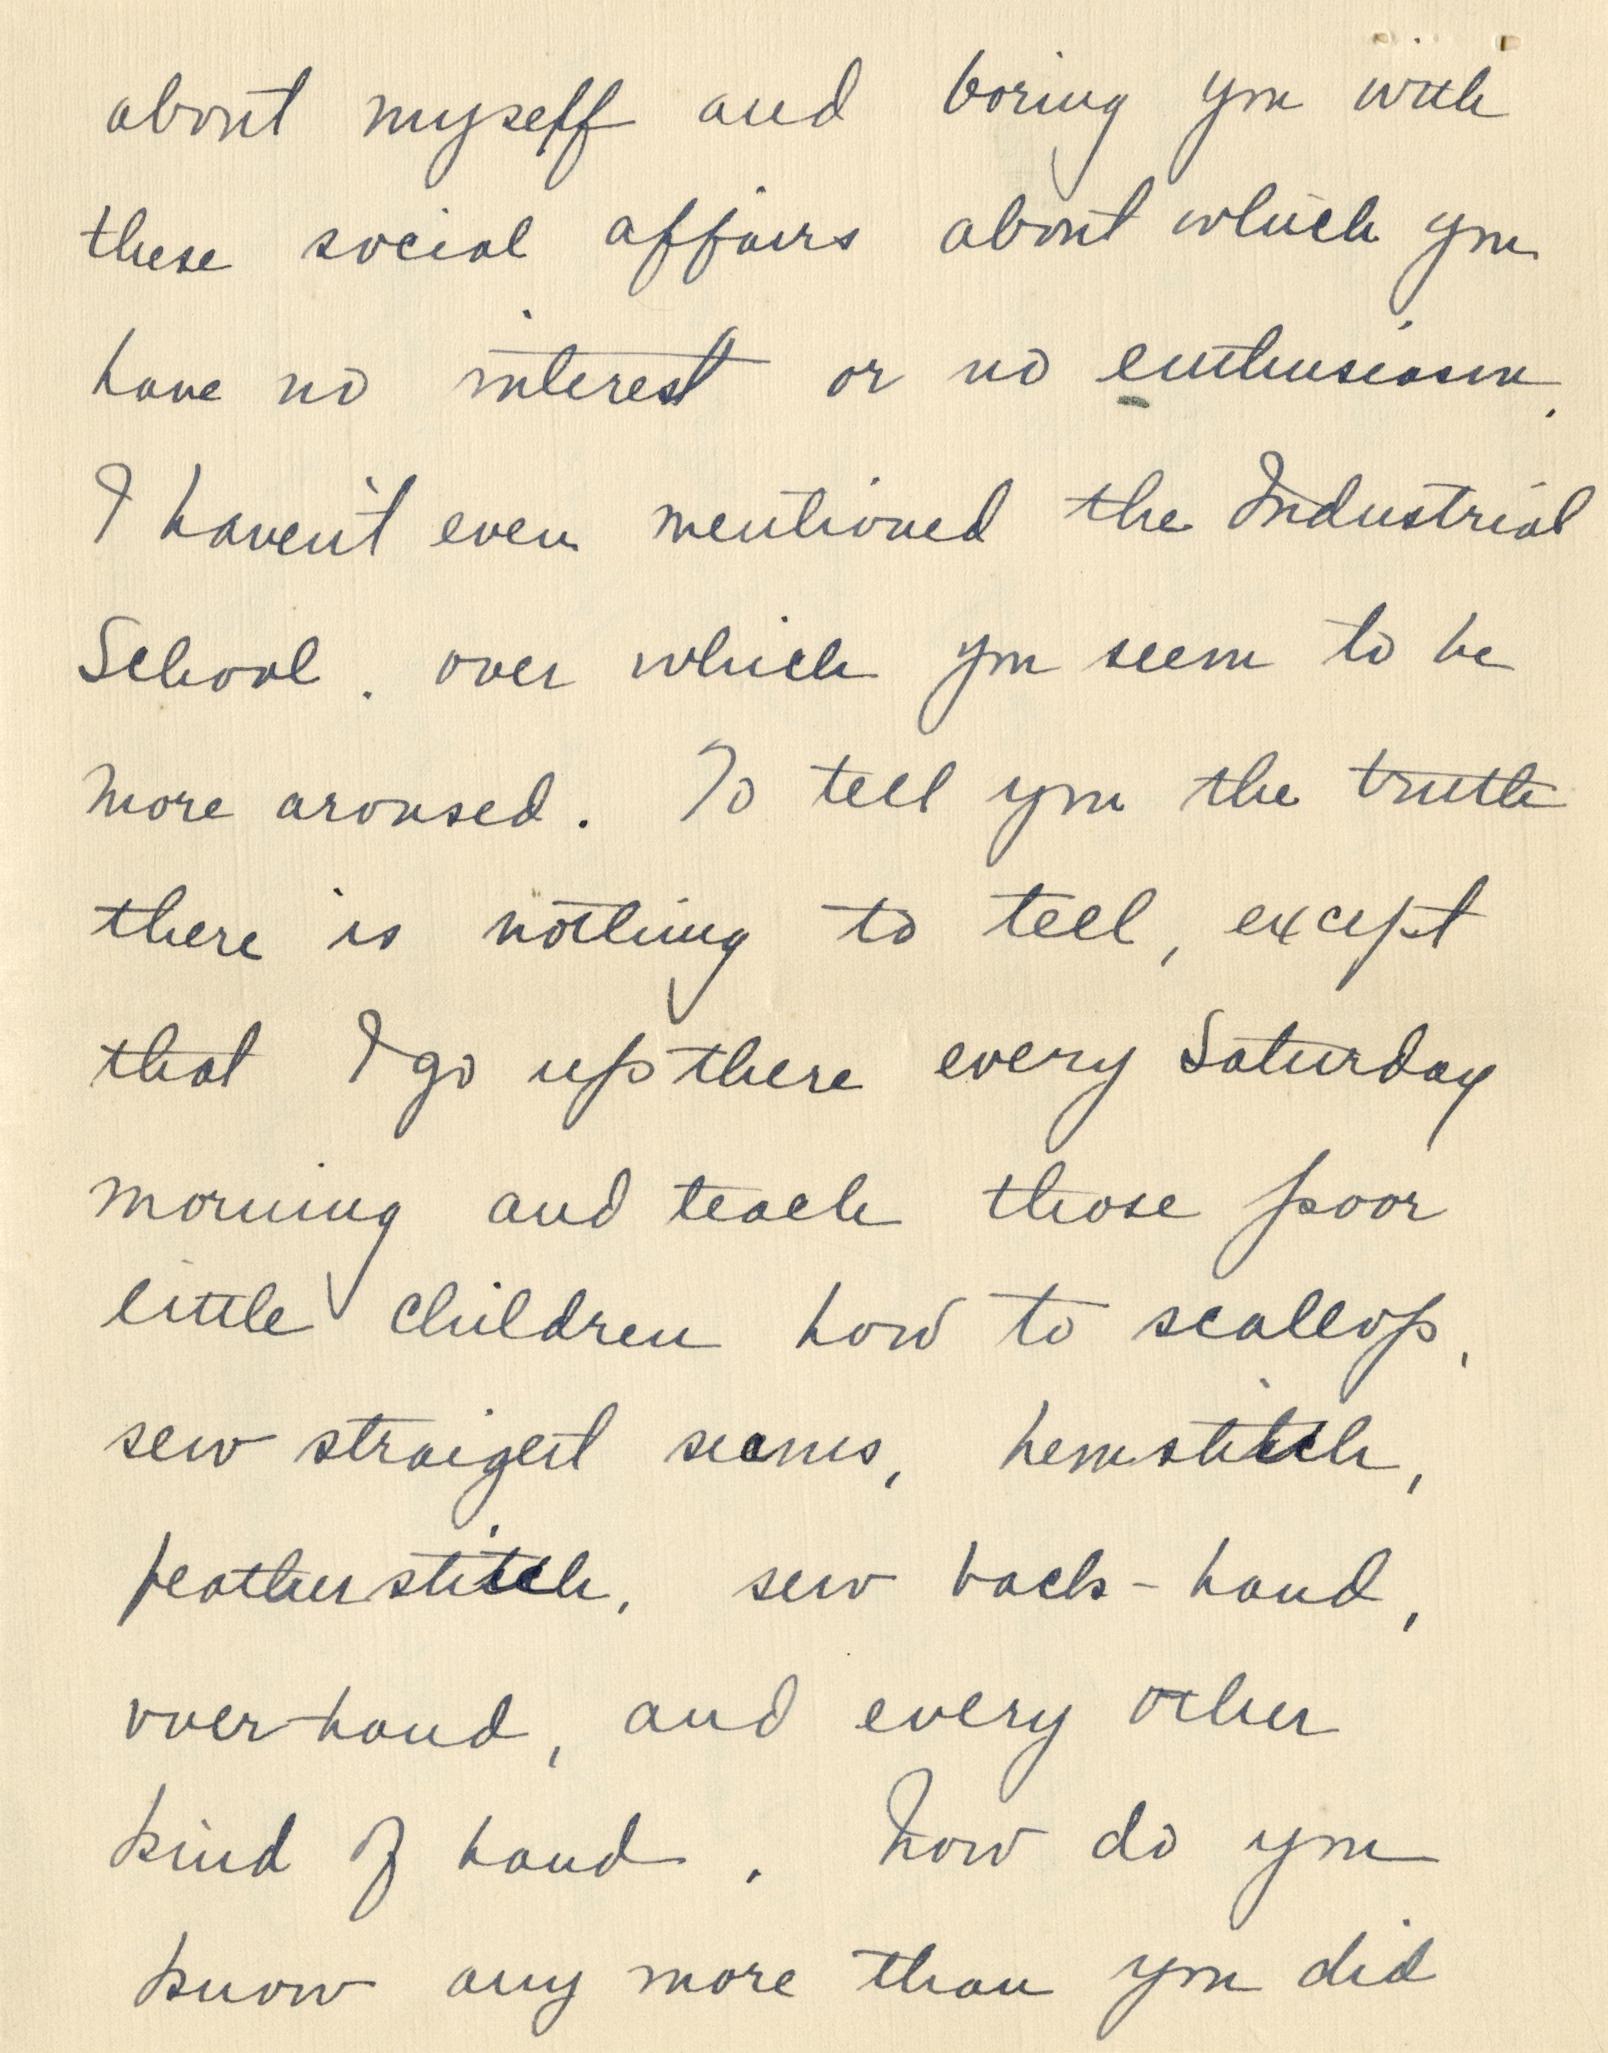 about myself and boring you with
these social affairs about which you
have no interest or no enthusiasm.
I haven't even mentioned the Industrial
School. over which you seem to be
more aroused. To tell you the truth
there is nothing to tell, except
that I go up there every Saturday
morning and teach those poor
little children how to scallop,
sew straigert seams, hemstitch,
featherstitch, sew back-hand,
over-hand, and every other
kind of hand. How do you
know any more than you did